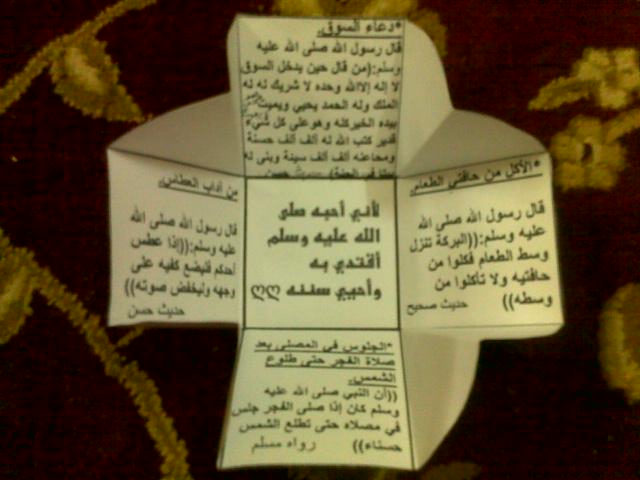 *دعاء السوق.
قال رسول الله صلى الله عليه
وسلم:(من قال حين يدخل السوق
لا إله إلاالله وحده لا شريك له له
الملك وله الحمد يحيي ويميت
بيده الخيركله وهوعلى كل شيء
قدير كتب الله له ألف ألف حسنة
ومحاعنه ألف ألف سيئة وبنى له
في الجنة) حسن
من آداب العطاس.
قال رسول الله صلى الله
عليه وسلم:((إذا عطس
أحدكم فليضع كفيه على
وجهه وليخفض صوته))
حديث حسن
لأني أحبه صلى
الله عليه وسلم
أقتدي به
وأحيي سنته ♡♡
*الأكل من حافتي الطعام.
قال رسول الله صلى الله
عليه وسلم:((البركة تنزل
وسط الطعام فكلوا من
حافتيه ولا تأكلوا من
وسطه)) حديث صحيح
*الجلوس في المصلى بعد
صلاة الفجر حتى طلوع
الشمس.
((أن النبي صلى الله عليه
وسلم كان إذا صلى الفجر جلس
في مصلاه حتى تطلع الشمس
حسناء)) رواه مسلم